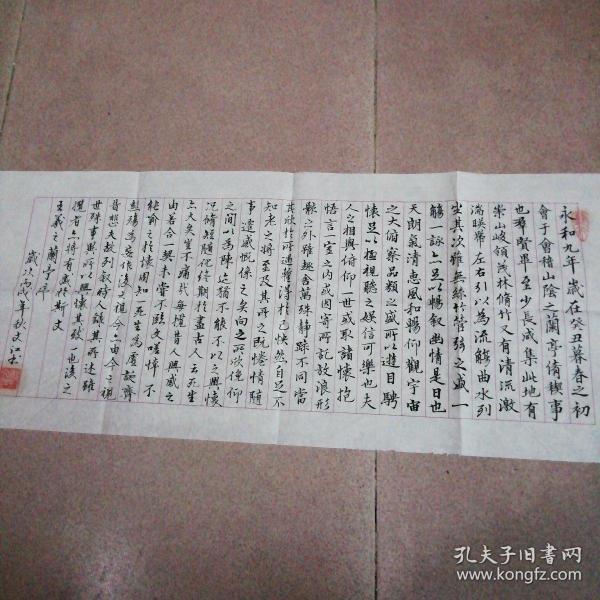 永和九年歲在癸丑暮春之初
會于會稽山陰之蘭亭脩稧事
也群賢畢至少長咸集此地有
崇山峻領茂林脩竹又有清流激
湍暎帶左右引以為流觴曲水列
坐其次雖無絲竹管弦之盛一
觴一詠亦足以暢叙幽情是日也
天朗氣清惠風和暢仰觀宇宙
之大俯察品類之盛所以遊目騁
懷足以極視聽之娛信可樂也夫
人之相與俯仰一世或取諸懷抱
悟言一室之内或因寄所託放浪形
骸之外雖趣舍萬殊静躁不同當
其欣於所遇暫得於己怏然自足不
知老之將至及其所之既惓情隨
事遷感慨係之矣向之所欣俛仰
之間以為陳迹猶不能不以之興懷
況脩短隨化終期於盡古人云死生
亦大矣豈不痛哉每攬昔人興感之
由若合一契未嘗不臨文嗟悼不
能喻之於懷固知一死生為虛誕齊
彭殤為妄作後之視今亦由今之視
昔悲夫故列叙時人録其所述雖
世殊事異所以興懷其致一也後之
攬者亦將有感於斯文
王羲之蘭亭序
歲次
年秋文
孔夫子旧书网
www.kongfz.com